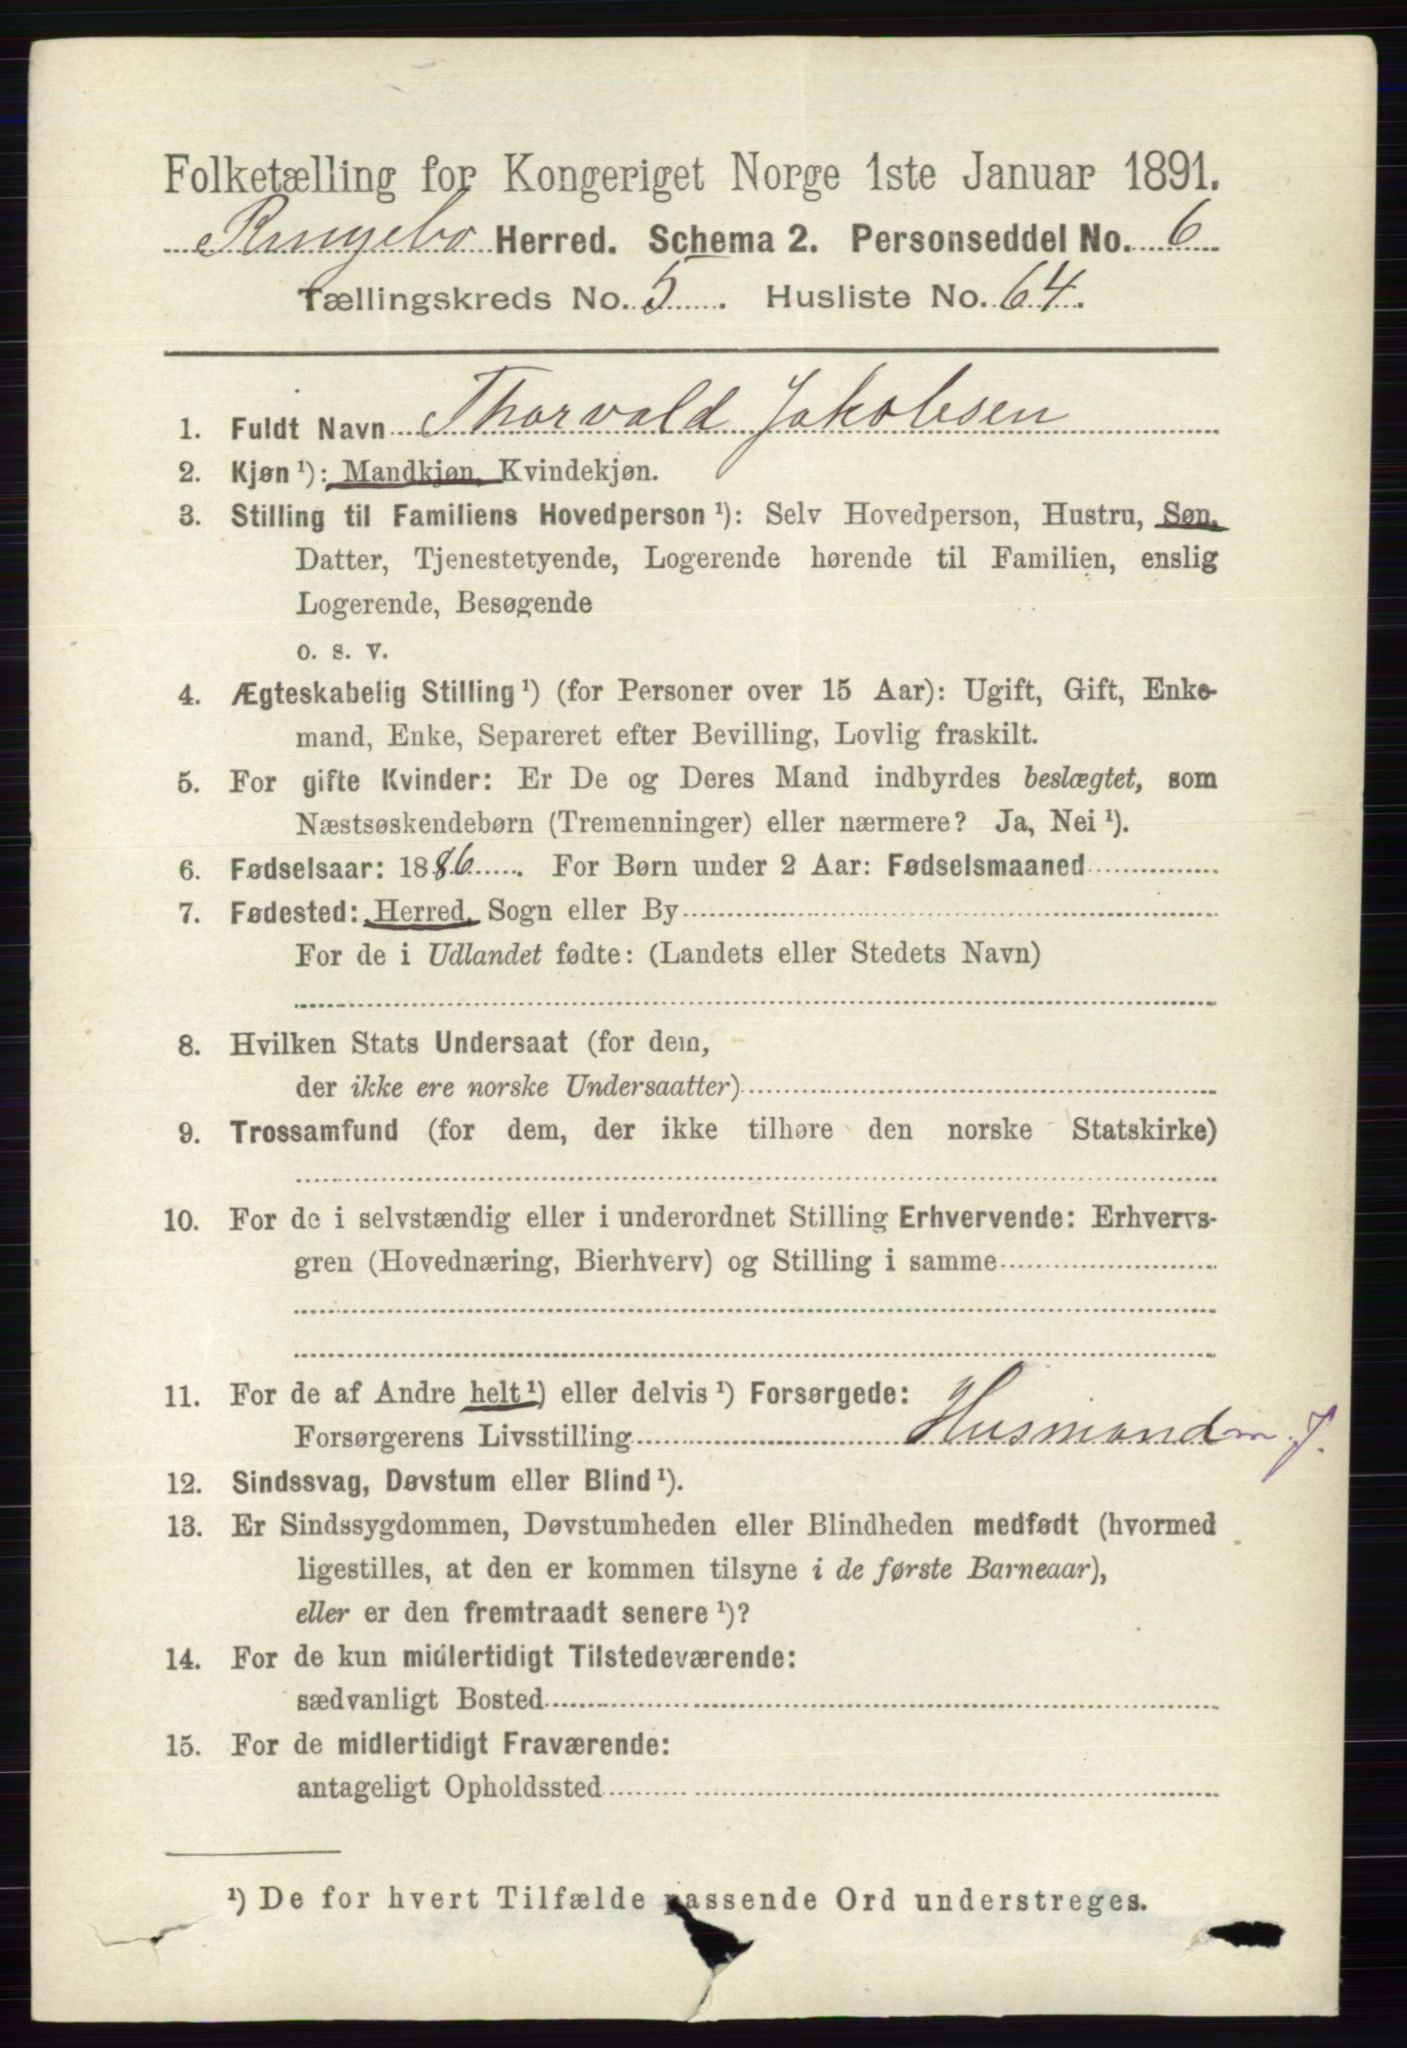 Folketælling for Kongeriget Norge 1ste Januar 1891.
Ringebo Herred. Schema 2. Personseddel No. 6
Tællingskreds No. 5. Husliste No. 64.
1. Fuldt Navn Thorvald Jakobsen
2. Kjøn ¹): Mandkjøn, Kvindekjøn.
3. Stilling til Familiens Hovedperson ¹): Selv Hovedperson, Hustru, Søn,
Datter, Tjenestetyende, Logerende hørende til Familien, enslig
Logerende, Besøgende
o. s. v.
4. Ægteskabelig Stilling ¹) (for Personer over 15 Aar): Ugift, Gift, Enke-
mand, Enke, Separeret efter Bevilling, Lovlig fraskilt.
5. For gifte Kvinder: Er De og Deres Mand indbyrdes beslægtet, som
Næstsøskendebørn (Tremenninger) eller nærmere? Ja, Nei ¹).
6. Fødselsaar: 1886. For Børn under 2 Aar: Fødselsmaaned
7. Fødested: Herred, Sogn eller By
For de i Udlandet fødte: (Landets eller Stedets Navn)
8. Hvilken Stats Undersaat (for dem,
der ikke ere norske Undersaatter)
9. Trossamfund (for dem, der ikke tilhøre den norske Statskirke)
10. For de i selvstændig eller i underordnet Stilling Erhvervende: Erhvervs-
gren (Hovednæring, Bierhverv) og Stilling i samme
11. For de af Andre helt ¹) eller delvis ¹) Forsørgede:
Forsørgerens Livsstilling Husmand m. J.
12. Sindssvag, Døvstum eller Blind ¹).
13. Er Sindssygdommen, Døvstumheden eller Blindheden medfødt (hvormed
ligestilles, at den er kommen tilsyne i de første Barneaar),
eller er den fremtraadt senere ¹)?
14. For de kun midlertidigt Tilstedeværende:
sædvanligt Bosted
15. For de midlertidigt Fraværende:
antageligt Opholdssted
¹) De for hvert Tilfælde passende Ord understreges.